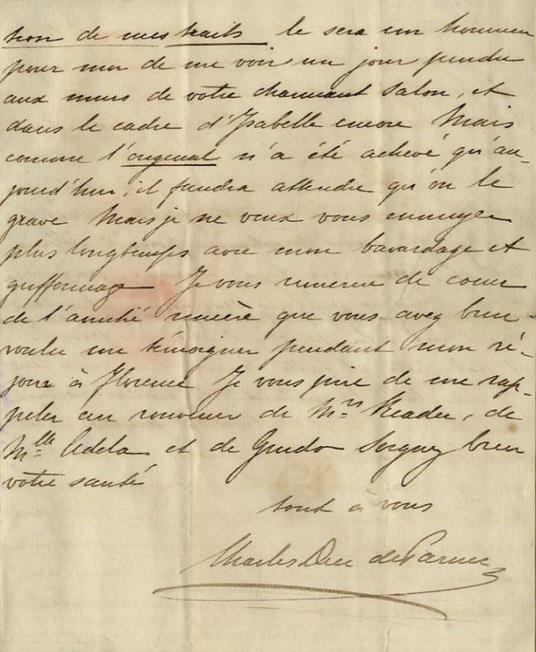 tion de mes traits le sera un honneur
pour moi de me voir un jour pendu
aux murs de votre charmant salon, et
dans le cadre d'Isabelle encore Mais
comme l'original n'a été achevé qu'au-
jourd'hui, il faudra attendre qu'on le
grave Mais je ne veux vous ennuyer
plus longtemps avec mon bavardage et
griffonnage Je vous remercie de coeur
de l'amitié sincère que vous avez bien
voulu me témoigner pendant mon sé-
jour à Florence Je vous prie de me rap-
peler au souvenir de Mrs Reader, de
Mlle Adela et de Guido Soignez bien
votre santé
tout à vous
Charles Duc de Parme